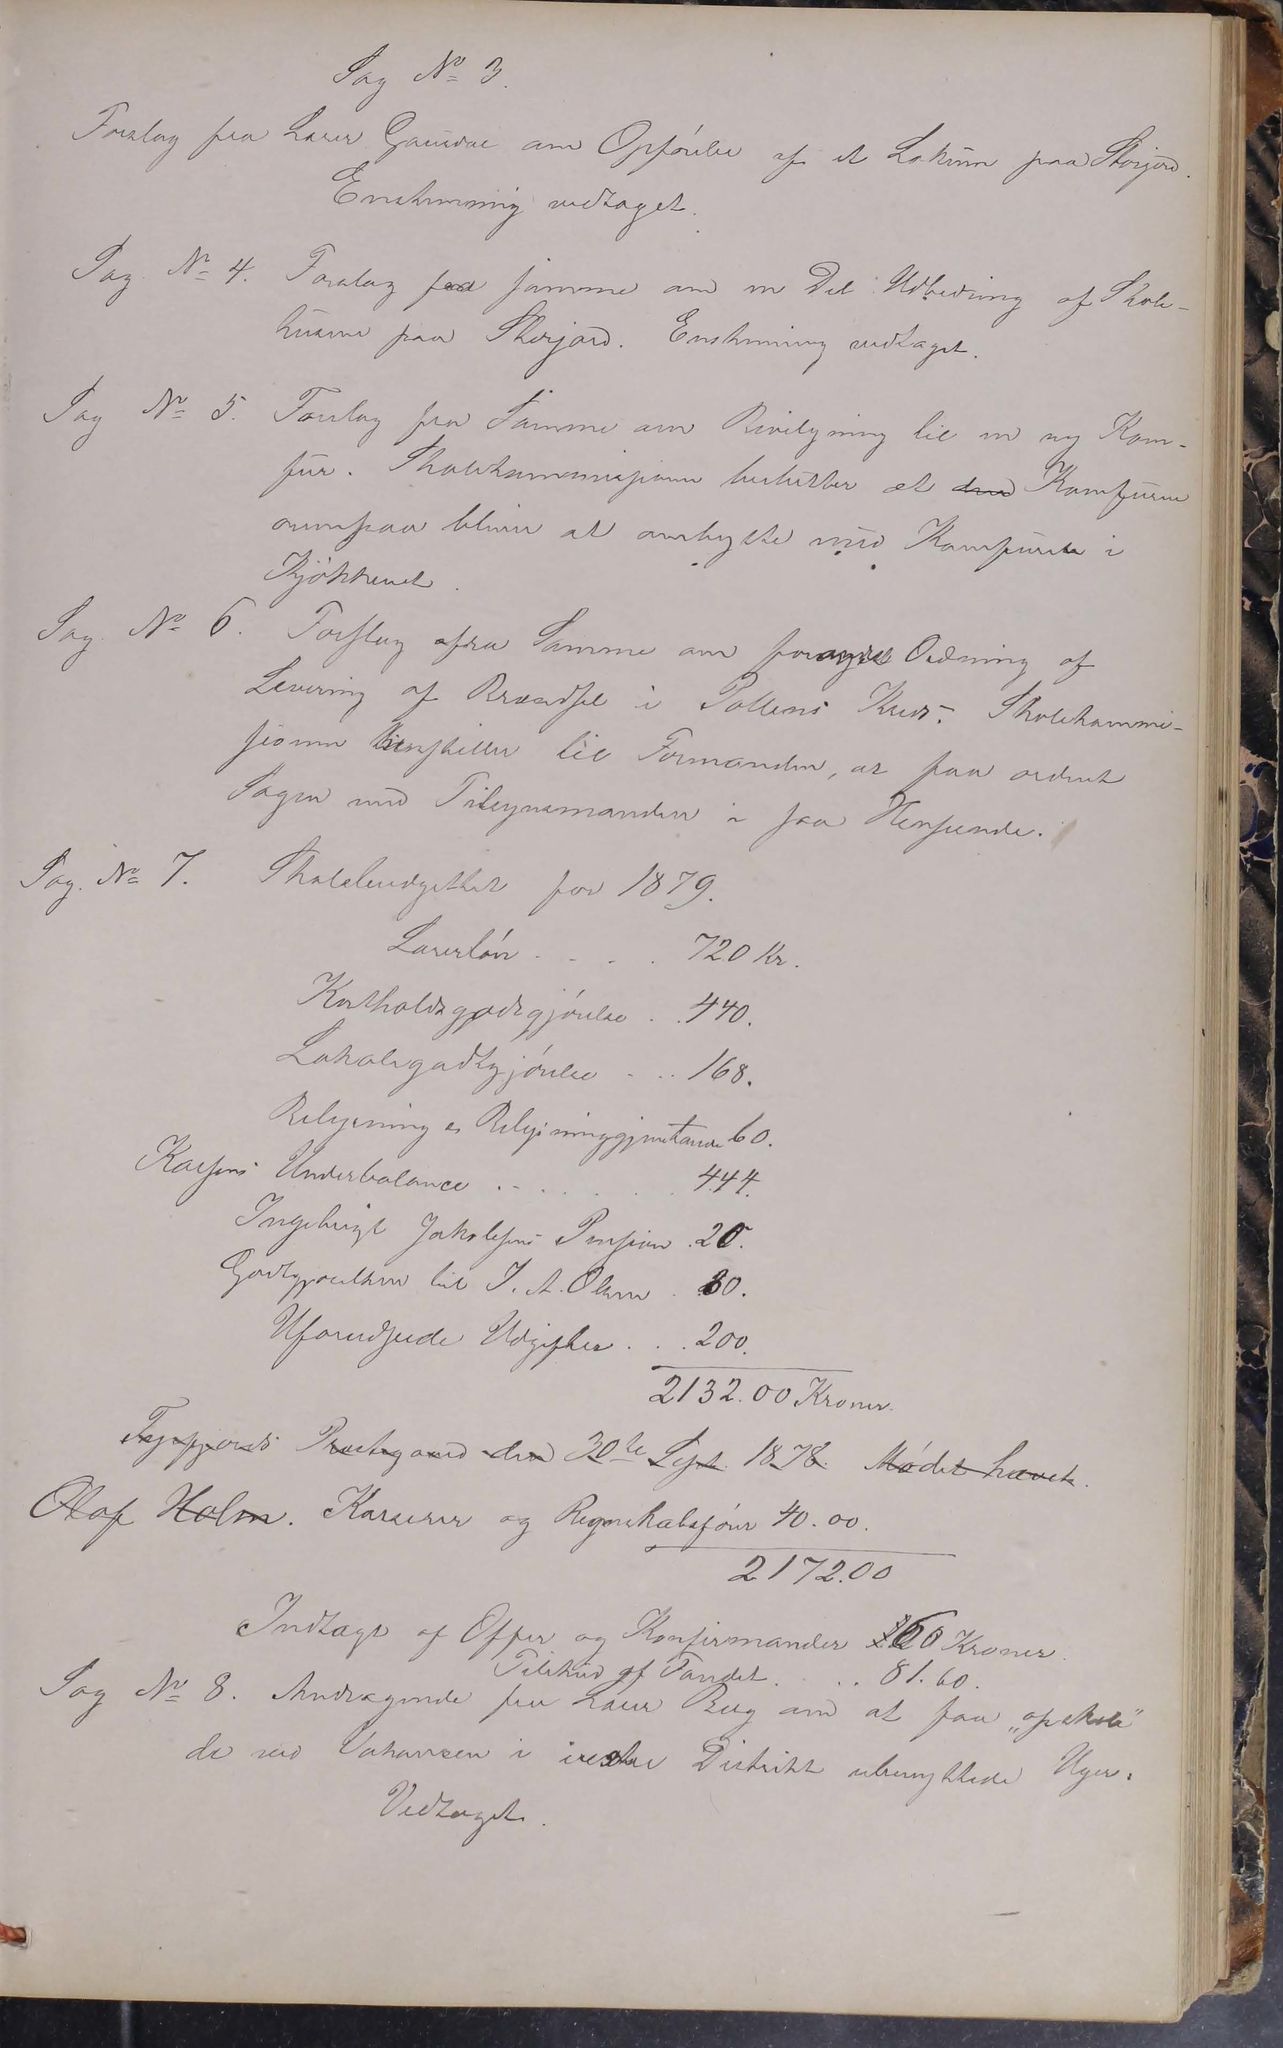 Sag No 3.
Forslag fra Lærer Gausdal om Opförelse af et Lokum paa Storjord.
Enstemmig vedtaget.
Sag No 4. Forslag fra samme om en Del Udbedring af Skole-
husene paa Storjord. Enstemmig vedtaget.
Sag No 5. Forslag fra Samme om Bevilgning til en ny Kom-
für. Skolekommissionen beslutter at den Komfüren
ovenpaa bliver at ombytte med Komfüren i
Kjökkenet.
Sag No 6. Forslag ofra Samme om Ordning af
Levering af Brændsel i Pollens Kreds. Skolekommis-
sionen henstiller til Formanden, at faa ordnet
Sagen med Tilsynsmanden i saa Henseende.
Sag. No 7. Skolebudgettet for 1879.
Lærerlön . . . . 720 Kr.
Kostholdsgodtgjörelse . . 440.
Lokalegodtgjörelse . . . 168.
Belysning & Belysninggjenstande 60.
Kassens Underbalance . . . . . . 444.
Ingebrigt Jakobsens Pension . 20.
Godtgjörelse til J. A. Olsen . 80.
Uforudseede Udgifter . . . 200.
2132.00 Kroner.
Præstegaard den 30te Sept. 1878. Mødet hævet.
Olaf Holm. Kasserer og Regnskabsförer 40.00.
2172.00
Indtægt af Offer og Konfirmander 160 Kroner.
Tilskud af Fondet . . . 81.60.
Sag No 8. Andragende fra Lærer Berg om at faa "opskole"
de ved Vakansen i Distrikt ubenyttede Uger.
Vedtaget.